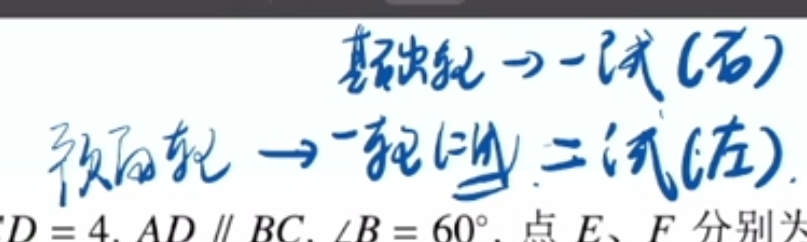 基础轮→一试(右)
预习轮→一轮二轮.二试(左).
D = 4, AD // BC, ∠B = 60°, 点 E、F 分别为